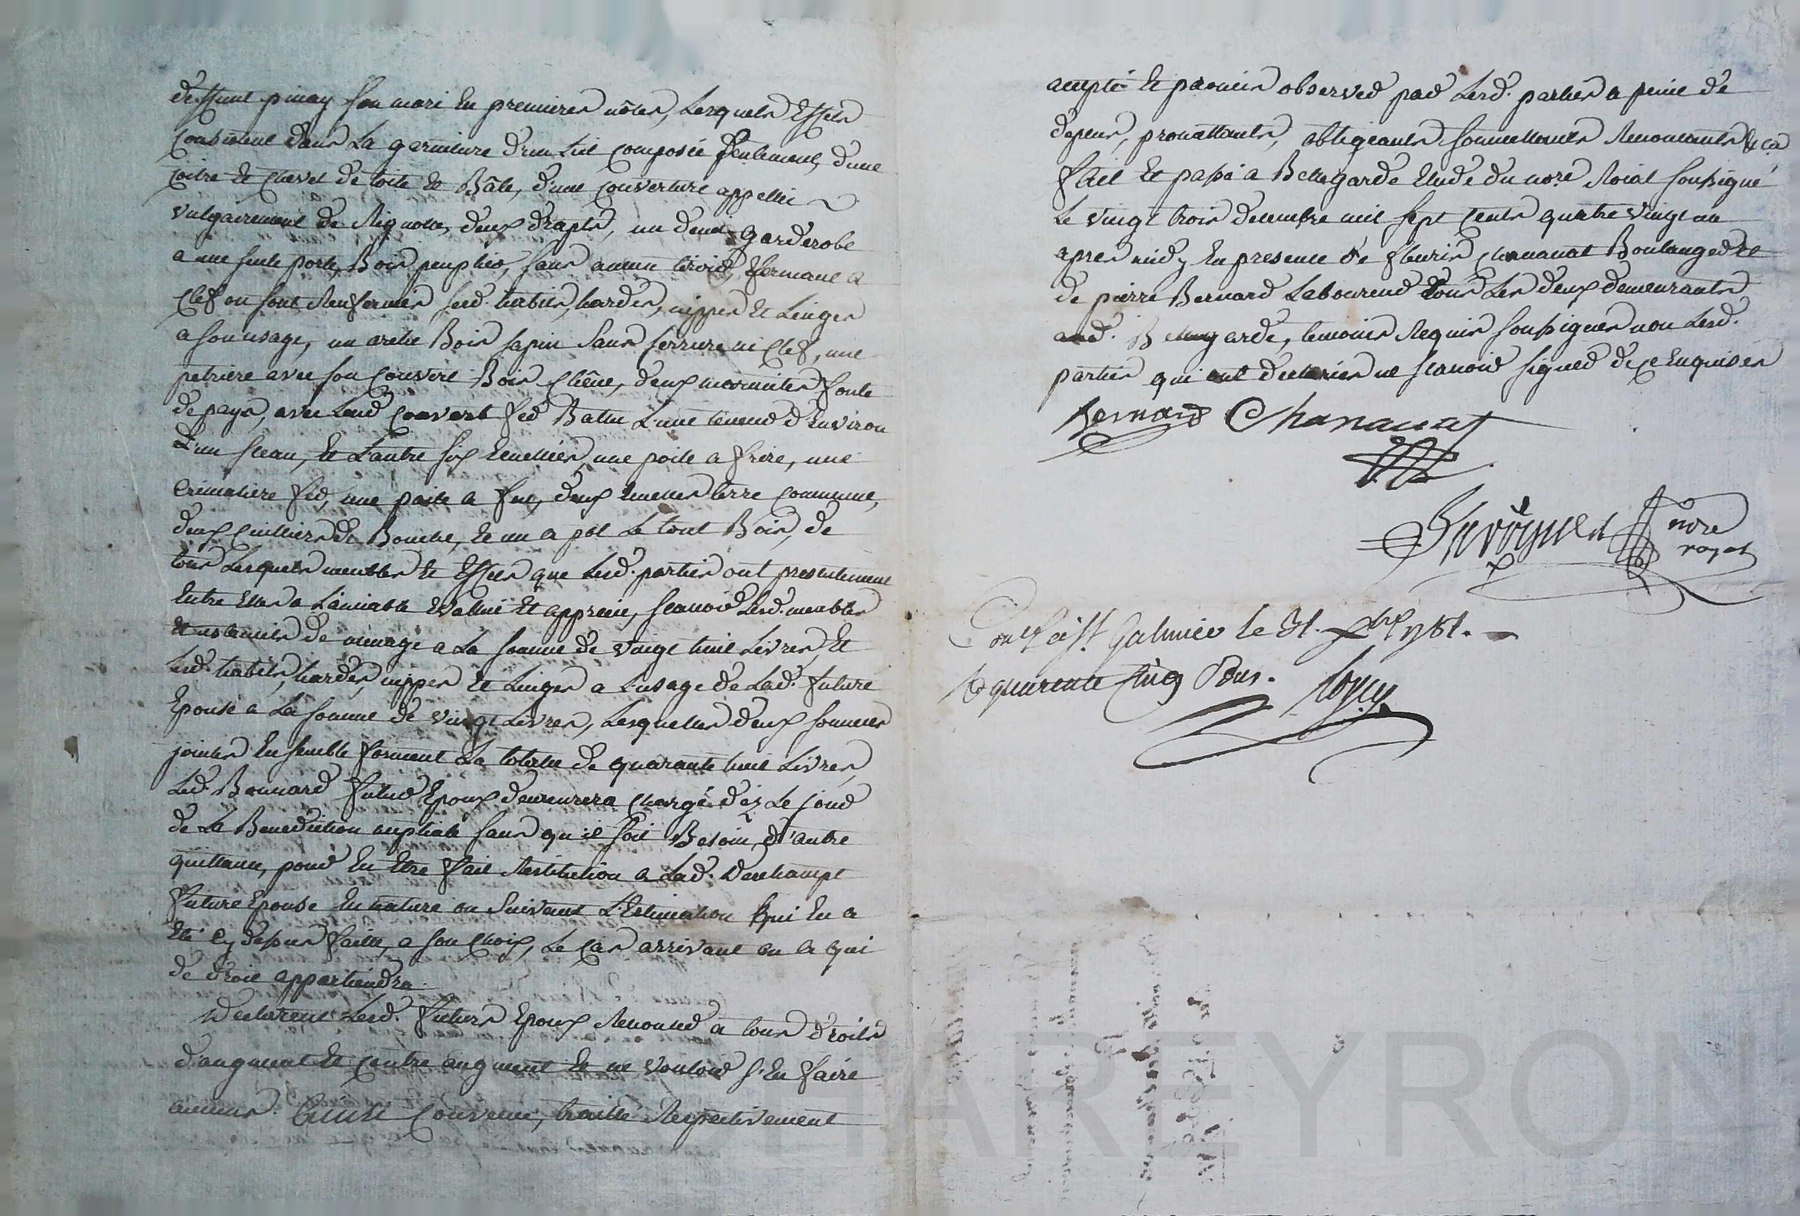 deffunt pinay son mari en premieres nôces, Lesquels Effets
Consistent dans La garniture d'un Lit composée seulement, d'une
Coitre et Chevet de toile et Bâle, d'une couverture appellée
vulgairement de Rignotte, deux draps, un demi garderobe
a une seule porte Bois peuplier, sans aucun tiroir, fermant a
Clef ou sont Renfermés ses d. habits, hardes, nippes et Linges
a son usage, un arche Bois sapin sans serrure ni Clef, une
petriere avec son couvert Bois Chêne, deux marmites fonte
de pays, avec Leur couvert fer Battu L'une tenant d'Environ
d'un seau, et L'autre six Ecuelles, une poile a frire, une
Crematiere fer, une paile a feu, deux Ecuelles terre commune,
deux Cuilliers de Bouche, et un a pot Le tout Bois, de
tous Lesquels meubles et Effets que Lesd. parties ont presentement
Entre Elles a L'amiable Evalué et apprecié, scavoir Lesd. meubles
et ustenciles de menage a La somme de vingt huit Livres, et
Lesd. habits, hardes, nippes et Linges a L'usage de Lad. future
Epouse a La somme de vingt Livres, Lesquelles deux sommes
jointes Ensemble forment La totalle de quarante huit Livres,
Led. Bonnard futur Epoux demeurera chargé dès Le jour
de La Benediction nuptiale sans qu'il soit Besoin d'autre
quittance, pour En Etre fait Restitution a Lad. Deschampt
future Epouse En nature ou suivant L'Estimation qui En a
Eté Cy dessus faitte, a son choix, Le Cas arrivant ou a qui
de droit appartiendra.
Declarent Lesd. futurs Epoux Renoncer a tous droits
d'augment et contre augment et ne vouloir s'En faire
aucuns. Ainsi Convenu, traitté Respectivement
accepté et promis observer par Lesd. parties a peine de
depens, promettants, obligeants soumettants Renonceants &ca
fait et passé a Bellegarde Etude du nore. Roial soussigné
Le vingt trois decembre mil sept cents quatre vingt un
apres midy En presence de fleuris Chanavat Boulanger et
de pierre Bernard Laboureur tous Les deux demeurants
aud. Bellegarde, temoins Requis soussignés non Lesd.
parties qui ont declarées ne scavoir signer de ce Enquises
Bernard Chanavat
nore
royal
Con.lé à St. Galmier le 31. xbre 1781.
R quarente cinq sous.